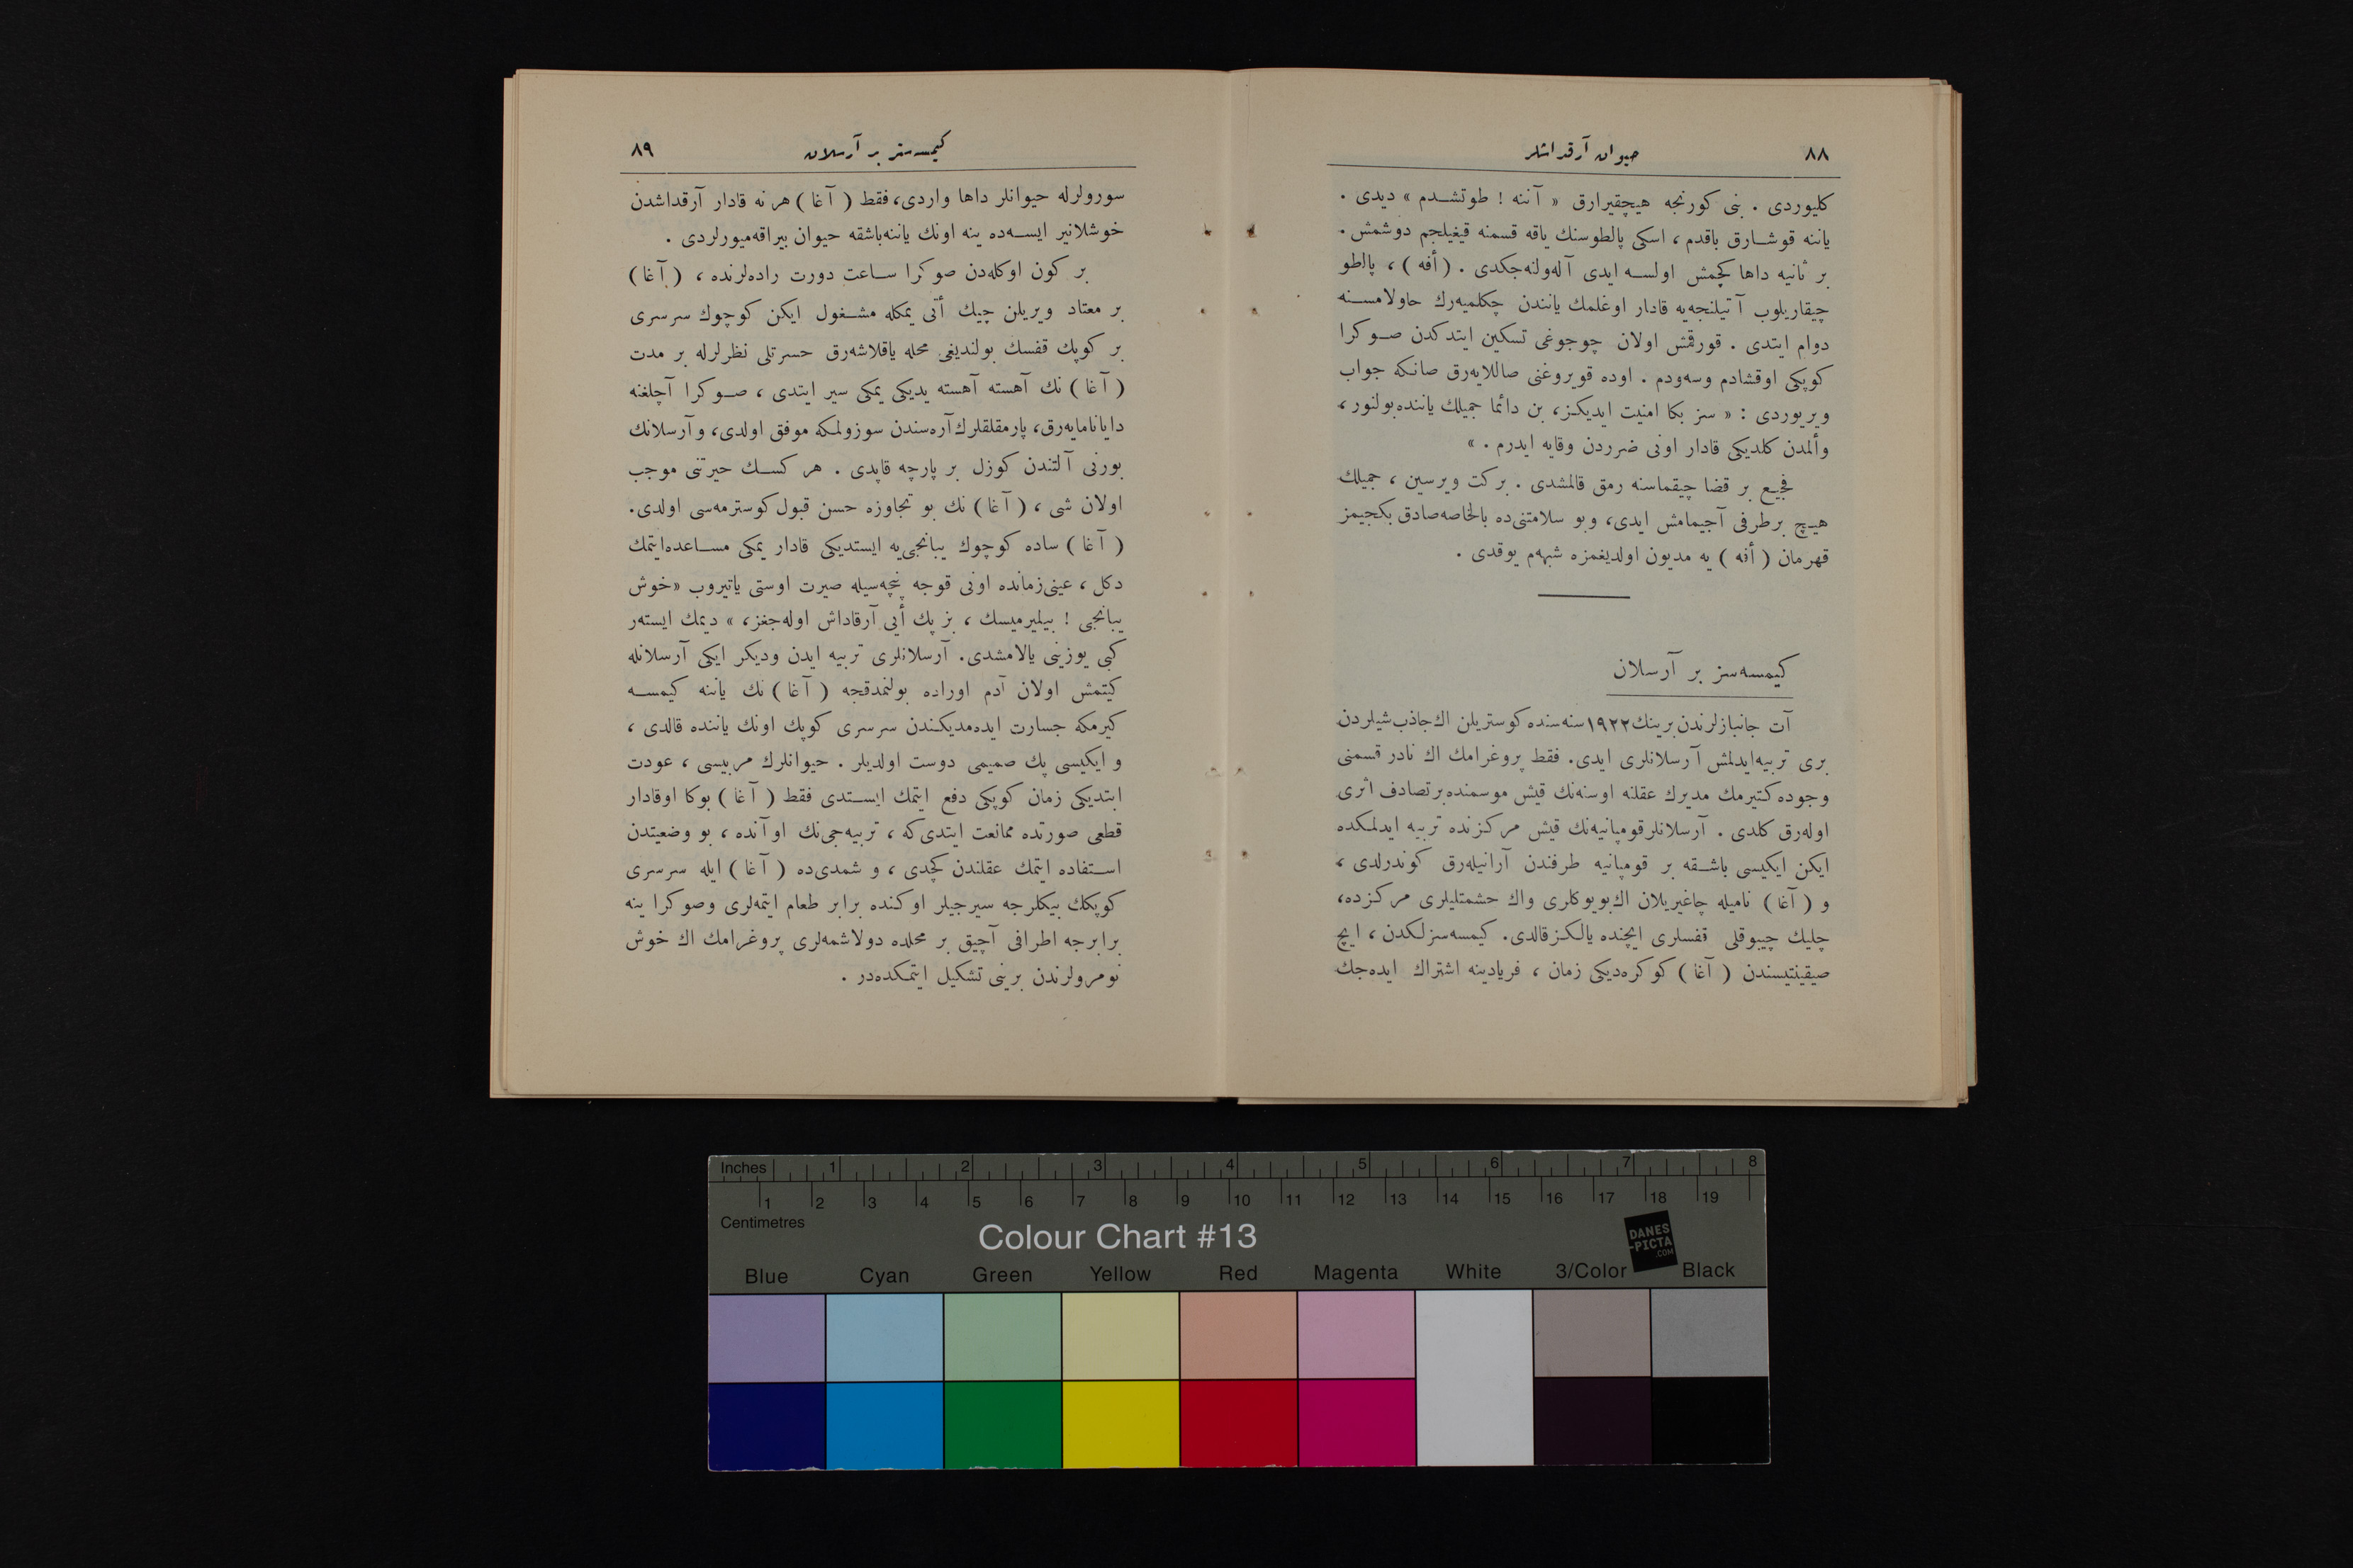 ٨٨
حیوان آرقداشلر
كلیوردی . بنی كورنجه هیچقیرارق « آننه ! طوتشدم » دیدی .
یاننه قوشارق باقدم ، اسكی پالطوسنك یاقه قسمنه قیغیلجم دوشمش .
بر ثانیه داها كچمش اولسه ایدی آله‌ولنه‌جكدی . ( أفه ) ، پالطو
چیقاریلوب آتیلنجه‌یه قادار اوغلمك یانندن چكلمیه‌رك حاولامسنه
دوام ایتدی . قورقمش اولان چوجوغی تسكین ایتدكدن صوكرا
كوپكی اوقشادم وسه‌ودم . اوده قویروغنی صاللایه‌رق صانكه جواب
ویریوردی : « سز بكا امنیت ایدیكز، بن دائما جمیلك یاننده بولنور ،
وألمدن كلدیكی قادار اونی ضرردن وقایه ایدرم . »
فجیع بر قضا چیقماسنه رمق قالمشدی . بركت ویرسین ، جمیلك
هیچ برطرفی آجیمامش ایدی، وبو سلامتنی‌ده بالخاصه صادق بكجیمز
قهرمان ( أفه ) یه مدیون اولدیغمزه شبهه‌م یوقدی .
كیمسه‌سز بر آرسلان
آت جانبازلرندن برینك ١٩٢٢ سنه‌سنده كوستریلن اك جاذب شیلردن
بری تربیه ایدلمش آرسلانلری ایدی. فقط پروغرامك اك نادر قسمنی
وجوده كتیرمك مدیرك عقلنه اوسنه‌نك قیش موسمنده برتصادف اثری
اوله‌رق كلدی . آرسلانلر قومپانیه‌نك قیش مركزنده تربیه ایدلمكده
ایكن ایكیسی باشقه بر قومپانیه طرفندن آرانیله‌رق كوندرلدی ،
و ( آغا ) نامیله چاغیریلان اك بویوكلری واك حشمتلیلری مركزده،
چلیك چیبوقلی قفسلری ایچنده یالكز قالدی. كیمسه‌سزلكدن ، ایچ
صیقینتیسندن ( آغا ) كوكره‌دیكی زمان ، فریادینه اشتراك ایده‌جك
كیمسه‌سز بر آرسلان
٨٩
سورولرله حیوانلر داها واردی، فقط ( آغا ) هر نه قادار آرقداشدن
خوشلانیر ایسه‌ده ینه اونك یاننه باشقه حیوان بیراقه‌میورلردی .
بر كون اوكله‌دن صوكرا ساعت دورت راده‌لرنده ، ( آغا )
بر معتاد ویریلن چیك أتی یمكله مشغول ایكن كوچوك سرسری
بر كوپك قفسك بولندیغی محله یاقلاشه‌رق حسرتلی نظرلرله بر مدت
( آغا ) نك آهسته آهسته یدیكی یمكی سیر ایتدی ، صوكرا آچلغنه
دایانامایه‌رق، پارمقلقلرك آره‌سندن سوزولمكه موفق اولدی، و آرسلانك
بورنی آلتندن كوزل بر پارچه قاپدی . هر كسك حیرتنی موجب
اولان شی ، ( آغا ) نك بو تجاوزه حسن قبول كوسترمه‌سی اولدی.
( آغا ) ساده كوچوك یبانجی‌یه ایستدیكی قادار یمكی مساعده ایتمك
دكل ، عینی زمانده اونی قوجه پنچه‌سیله صیرت اوستی یاتیروب «خوش
یبانجی ! بیلیرمیسك ، بز پك أیی آرقاداش اوله‌جغز، » دیمك ایسته‌ر
كبی یوزینی یالامشدی. آرسلانلری تربیه ایدن ودیكر ایكی آرسلانله
كیتمش اولان آدم اوراده بولنمدقجه ( آغا ) نك یاننه كیمسه
كیرمكه جسارت ایده‌مدیكندن سرسری كوپك اونك یاننده قالدی ،
و ایكیسی پك صمیمی دوست اولدیلر . حیوانلرك مربیسی ، عودت
ایتدیكی زمان كوپكی دفع ایتمك ایستدی فقط ( آغا ) بوكا اوقادار
قطعی صورتده ممانعت ایتدی كه ، تربیه‌جی‌نك او آنده ، بو وضعیتدن
استفاده ایتمك عقلندن كچدی ، و شمدی‌ده ( آغا ) ایله سرسری
كوپكك بیكلرجه سیرجیلر اوكنده برابر طعام ایتمه‌لری وصوكرا ینه
برابرجه اطرافی آچیق بر محلده دولاشمه‌لری پروغرامك اك خوش
نومرولرندن برینی تشكیل ایتمكده‌در .
Inches 1 2 3 4 5 6 7 8
1 2 3 4 5 6 7 8 9 10 11 12 13 14 15 16 17 18 19
Centimetres
Colour Chart #13
DANES
-PICTA
.COM
Blue Cyan Green Yellow Red Magenta White 3/Color Black